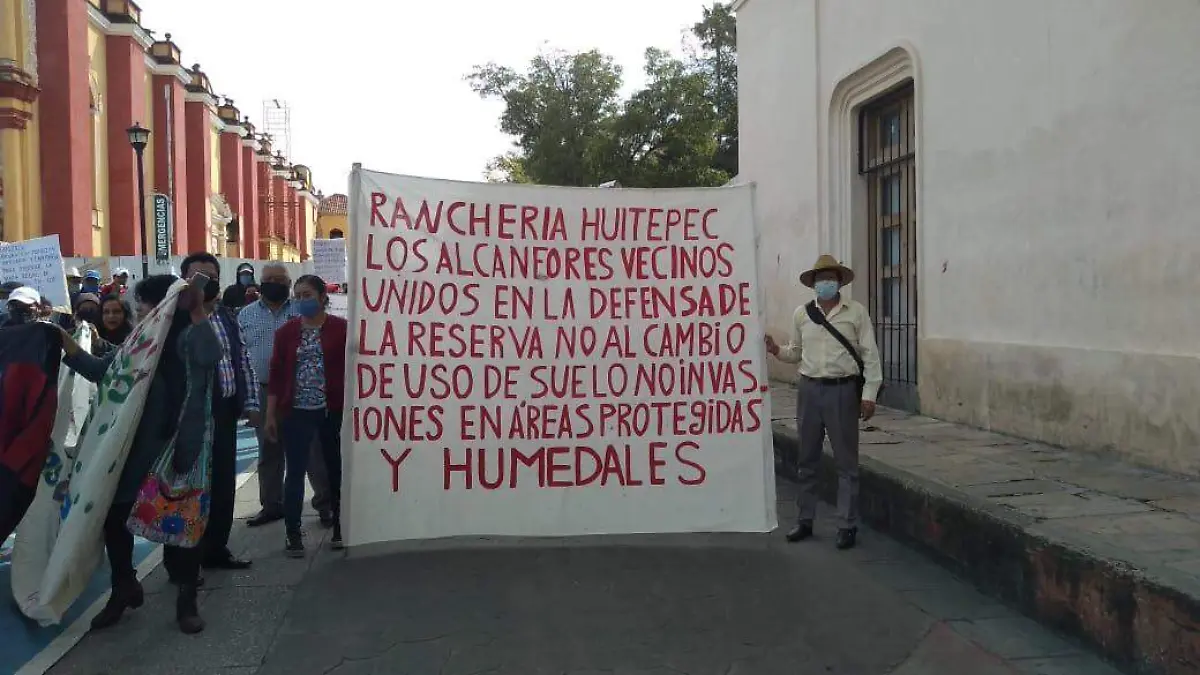 RANCHERIA HUITEPEC
LOS ALCANFORES VECINOS
UNIDOS EN LA DEFENSA DE
LA RESERVA NO AL CAMBIO
DE USO DE SUELO NO INVAS.
IONES EN ÁREAS PROTEGIDAS
Y HUMEDALES
EMERGENCIAS